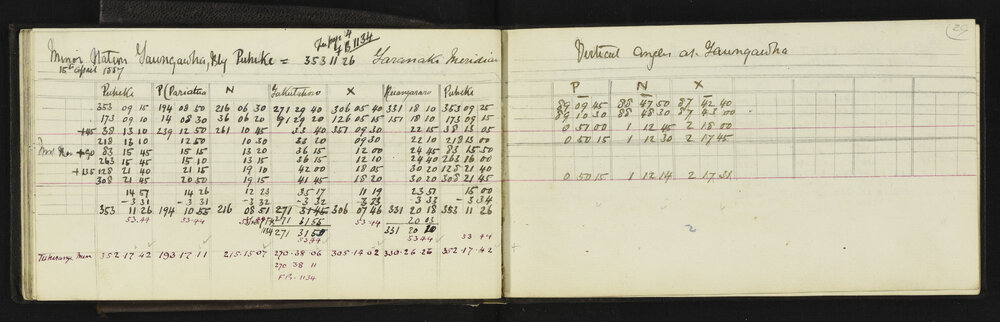 See page 4
F B 1134
Minor Station Taungawha, By Pukeke = 353 11 26 Taranaki Meridian
15th april 1887
Pukeke P N X Puangaroro Pukeke
353 09 15 194 08 50 216 06 30 271 29 40 306 05 40 331 18 10 353 09 25
173 09 10 14 08 30 36 06 20 91 29 20 126 05 15 151 18 10 173 09 15
+45 38 13 10 239 12 50 261 10 45 33 40 351 09 30 22 15 38 13 05
218 13 10 12 50 10 30 33 20 09 30 22 10 218 13 00
+90 83 15 45 15 15 13 20 36 15 12 00 24 45 83 15 50
263 15 45 15 10 13 15 36 15 12 10 24 40 263 16 00
+135 128 21 40 21 15 19 10 42 00 18 05 30 20 128 21 40
308 21 45 20 50 19 15 41 45 18 20 30 20 308 21 45
14 57 14 26 12 23 35 17 11 19 23 51 15 00
-3 31 -3 31 -3 32 -3 32 -3 33 -3 33 -3 34
353 11 26 194 10 55 216 08 51 271 31 45 306 07 46 331 20 18 353 11 26
53.44 53.44 271 31 55 53.44 20 03
1134 271 31 50 331 20 20
53.44 53.44 53 44
352.17.42 193.17.11 215.15.07 270.38.06 305.14.02 330.26.26 352.17.42
270 38 11
F B. 1134
29
Vertical angles at Taungawha
P N X
89 09 45 88 47 50 87 42 40
89 10 30 88 48 30 87 43 00
0 51 00 1 12 45 2 18 00
0 50 15 1 12 30 2 17 45
0 50 15 1 12 14 2 17 31
2